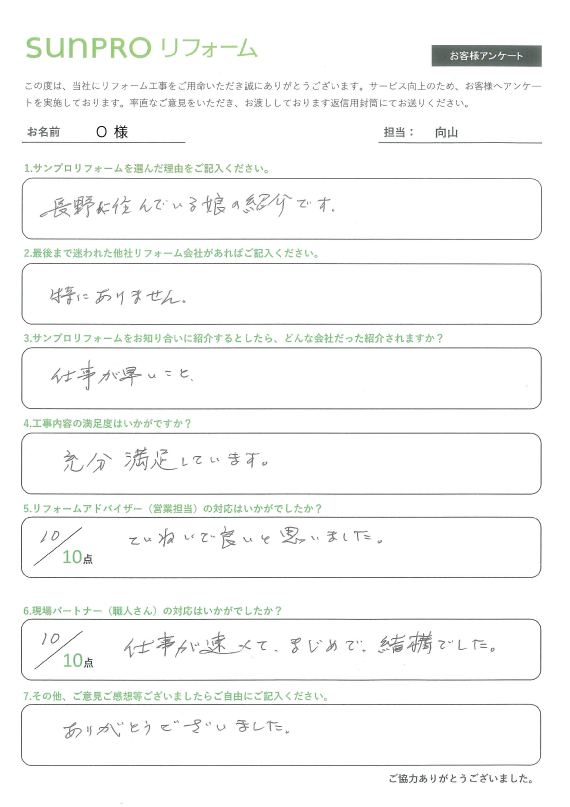 SUNPRO リフォーム
お客様アンケート
この度は、当社にリフォーム工事をご用命いただき誠にありがとうございます。サービス向上のため、お客様へアンケー
トを実施しております。率直なご意見をいただき、お渡ししております返信用封筒にてお送りください。
お名前 O 様 担当： 向山
1.サンプロリフォームを選んだ理由をご記入ください。
長野に住んでいる娘の紹介です.
2.最後まで迷われた他社リフォーム会社があればご記入ください。
特にありません。
3.サンプロリフォームをお知り合いに紹介するとしたら、どんな会社だった紹介されますか？
仕事が早いこと、
4.工事内容の満足度はいかがですか？
充分 満足しています。
5.リフォームアドバイザー（営業担当）の対応はいかがでしたか？
10/10点 ていねいで良いと思いました。
6.現場パートナー（職人さん）の対応はいかがでしたか？
10/10点 仕事が速くて、まじめで、結構でした。
7.その他、ご意見ご感想等ございましたらご自由にご記入ください。
ありがとうございました。
ご協力ありがとうございました。